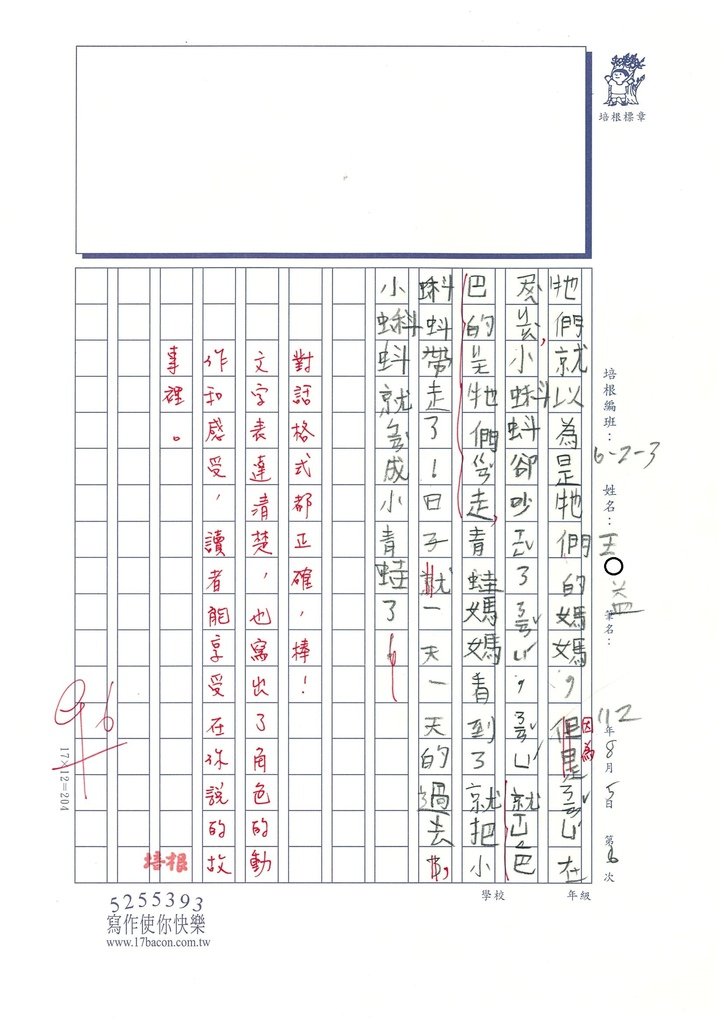 培根標章
培根編班：6-2-3 姓名：王 益 筆名： 112年8月5日 第6次
學校 年級
牠們就以為是牠們的媽媽，但是 在
因為
小蝌蚪卻吵 了 ， 就 巴
巴的是牠們 走，青蛙媽媽看到了就把小
蝌蚪帶走了！日子就一天一天的過去
小蝌蚪就 成小青蛙了
對話格式都正確，棒！
文字表達清楚，也寫出了角色的動
作和感受，讀者能享受在你說的故
事裡。
培根
96
17×12=204
5255393
寫作使你快樂
www.17bacon.com.tw